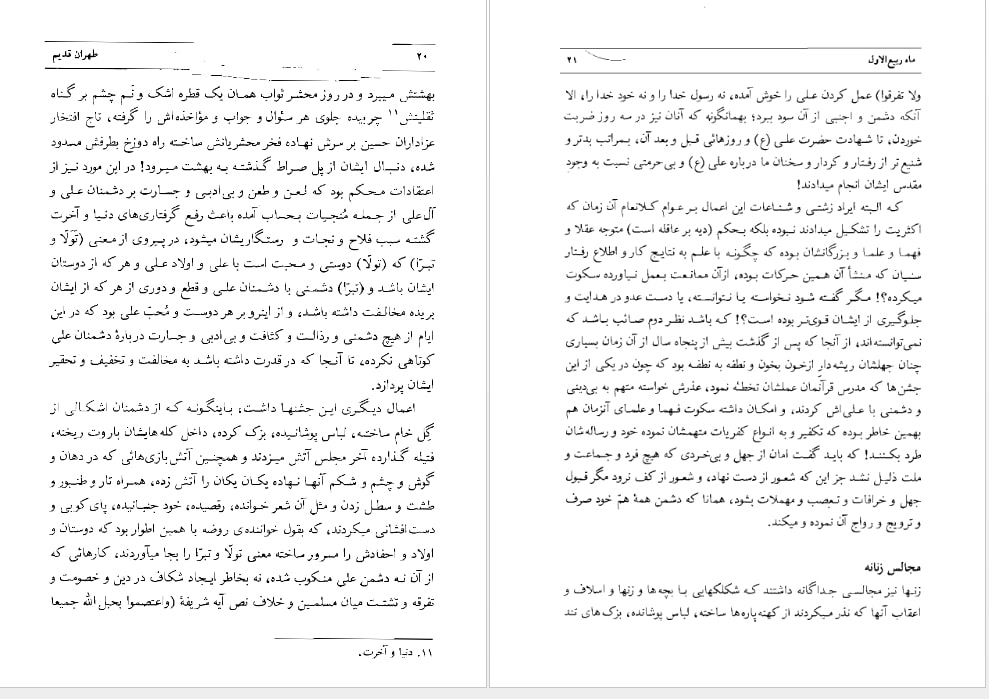 ۲۰
طهران قدیم
بهشتش میبرد و در روز محشر ثواب همان یک قطره اشک و نَم چشم بر گناه
ثقلینش۱۱ چربیده جلوی هر سئوال و جواب و مؤاخذه‌اش را گرفته، تاج افتخار
عزاداران حسین بر سرش نهاده فخر محشریانش ساخته راه دوزخ بطرفش مسدود
شده، دنبال ایشان از پل صراط گذشته به بهشت میرود! در این مورد نیز از
اعتقادات محکم بود که لعن و طعن و بی‌ادبی و جسارت بر دشمنان علی و
آل‌علی از جمله مُنجیات بحساب آمده باعث رفع گرفتاری‌های دنیا و آخرت
گشته سبب فلاح و نجات و رستگاریشان میشود، در پیروی از معنی (تَوَلّا و
تبرّا) که (تولّا) دوستی و محبت است با علی و اولاد علی و هر که از دوستان
ایشان باشد و (تبرّا) دشمنی با دشمنان علی و قطع و دوری از هر که از ایشان
بریده مخالفت داشته باشد، و از اینرو بر هر دوست و مُحبّ علی بود که در این
ایام از هیچ دشمنی و رذالت و کثافت و بی‌ادبی و جسارت دربارهٔ دشمنان علی
کوتاهی نکرده، تا آنجا که در قدرت داشته باشد به مخالفت و تخفیف و تحقیر
ایشان پردازد.
اعمال دیگری این جشنها داشت، باینگونه که از دشمنان اشکالی از
گِل خام ساخته، لباس پوشانیده، بزک کرده، داخل کله‌هایشان باروت ریخته،
فتیله گذارده آخر مجلس آتش میزدند و همچنین آتش‌بازی‌هائی که در دهان و
گوش و چشم و شکم آنها نهاده یکان یکان را آتش زده، همراه تار و طنبور و
طشت و سطل زدن و مثل آن شعر خوانده، رقصیده، خود جنبانیده، پای کوبی و
دست افشانی میکردند، که بقول خواننده‌ی روضه با همین اطوار بود که دوستان و
اولاد و احفادش را مسرور ساخته معنی تولّا و تبرّا را بجا میآوردند، کارهائی که
از آن نه دشمن علی منکوب شده، نه بخاطر ایجاد شکاف در دین و خصومت و
تفرقه و تشتت میان مسلمین و خلاف نص آیه شریفهٔ (واعتصموا بحبل الله جمیعا
۱۱. دنیا و آخرت.
ماه ربیع‌الاول
۲۱
ولا تفرقوا) عمل کردن علی را خوش آمده، نه رسول خدا را و نه خود خدا را، الا
آنکه دشمن و اجنبی از آن سود برد؛ بهمانگونه که آنان نیز در سه روز ضربت
خوردن، تا شهادت حضرت علی (ع) و روزهائی قبل و بعد آن، بمراتب بدتر و
شنیع‌تر از رفتار و کردار و سخنان ما درباره علی (ع) و بی‌حرمتی نسبت به وجود
مقدس ایشان انجام میدادند!
که البته ایراد زشتی و شناعات این اعمال بر عوام کلانعام آن زمان که
اکثریت را تشکیل میدادند نبوده بلکه بحکم (دیه بر عاقله است) متوجه عقلا و
فهما و علما و بزرگانشان بوده که چگونه با علم به نتایج کار و اطلاع رفتار
سنیان که منشأ آن همین حرکات بوده، ازآن ممانعت بعمل نیاورده سکوت
میکرده؟! مگر گفته شود نخواسته یا نتوانسته، یا دست عدو در هدایت و
جلوگیری از ایشان قوی‌تر بوده است؟! که باشد نظر دوم صائب باشد که
نمی‌توانسته‌اند، از آنجا که پس از گذشت بیش از پنجاه سال از آن زمان بسیاری
چنان جهلشان ریشه‌دار ازخون بخون و نطفه به نطفه بود که چون در یکی از این
جشن‌ها که مدرس قرآنمان عملشان تخطئه نمود، عذرش خواسته متهم به بی‌دینی
و دشمنی با علی‌اش کردند، و امکان داشته سکوت فهما و علمای آنزمان هم
بهمین خاطر بوده که تکفیر و به انواع کفریات متهمشان نموده خود و رساله‌شان
طرد بکنند! که باید گفت امان از جهل و بی‌خردی که هیچ فرد و جماعت و
ملت ذلیل نشد جز این که شعور از دست نهاد، و شعور از کف نرود مگر قبول
جهل و خرافات و تعصب و مهملات بشود، همانا که دشمن همهٔ همّ خود صرف
و ترویج و رواج آن نموده و میکند.
مجالس زنانه
زنها نیز مجالسی جداگانه داشتند که شکلکهایی با بچه‌ها و زنها و اسلاف و
اعقاب آنها که نذر میکردند از کهنه‌پاره‌ها ساخته، لباس پوشانده، بزک‌های تند